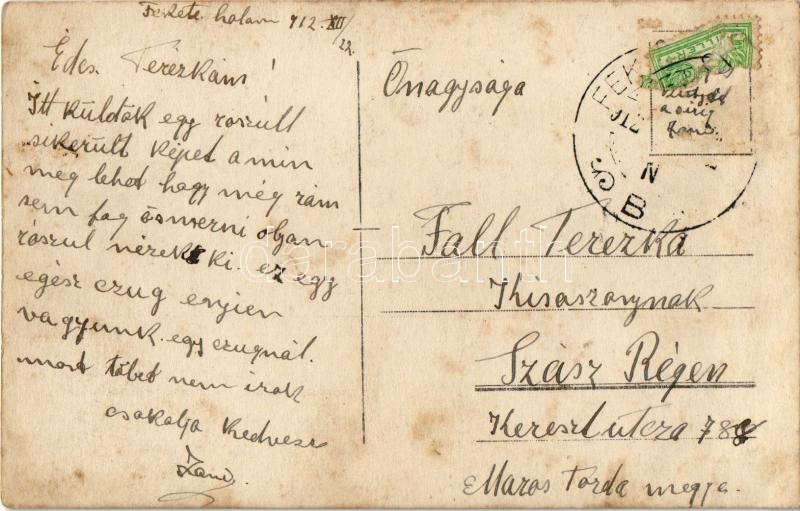 Fekete halom 912 XII/22.
Édes Terézkám!
Itt küldök egy roszúll
sikerült képet a min
meg lehet hogy még rám
sem fog ösmerni olyan
roszul nézek ki. ez egy
egész czug enyien
vagyunk egy czugnál.
most többet nem irok
csokolja kedvese
Önagysága
Fall Terezka
Kisaszonynak
Szász Régen
Kereszt utcza 78
Maros Torda megye.
FEK
912
N
B
darabanth